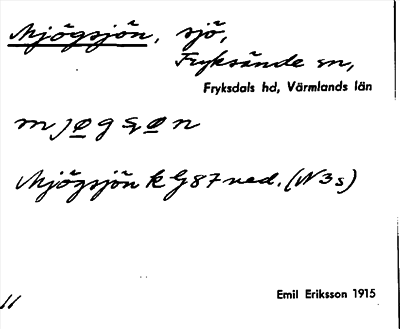 Mjögsjön, sjö,
Fryksände sn,
Fryksdals hd, Värmlands län
Mjögsjön k G87 ned. (N3s)
Emil Eriksson 1915
11